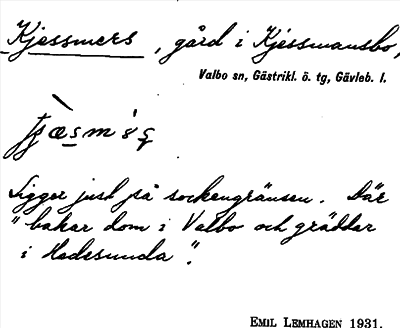 Kjessmers, gård i Kjessmansbo,
Valbo sn, Gästrikl. ö. tg, Gävleb. l.
Ligger just på sockengränsen. Där
"bakar dom i Valbo och gräddar
i Hedesunda".
EMIL LEMHAGEN 1931.